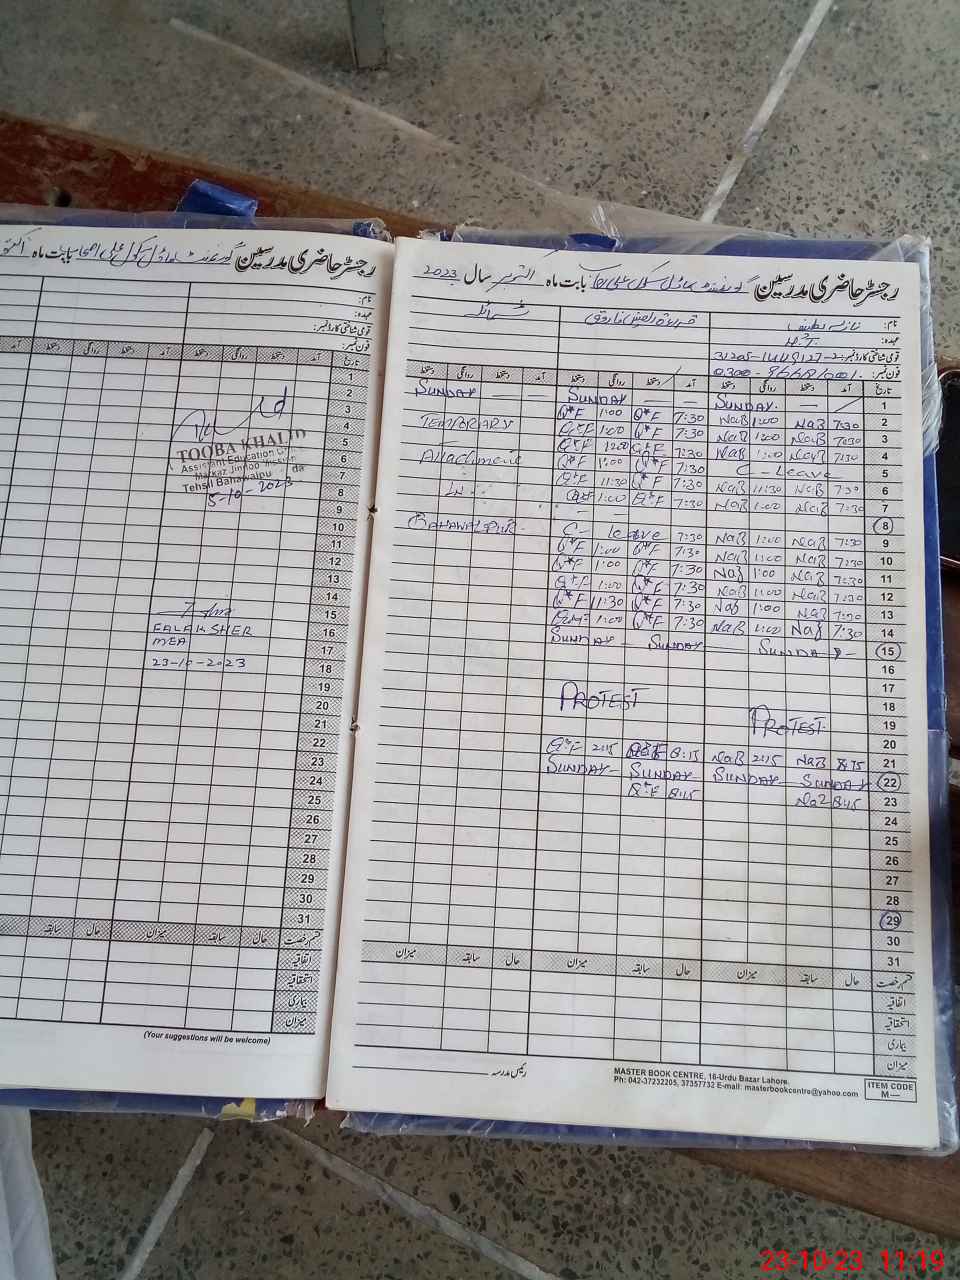 رجسٹر حاضری مدرسین گورنمنٹ ماڈل سکول بابت ماہ
نام:
عہدہ:
قومی شناختی کارڈ نمبر:
فون نمبر:
تاریخ آمد دستخط روانگی دستخط آمد
1
2
3
4
5
6
7
8
9
10
11
12
13
14
15
16
17
18
19
20
21
22
23
24
25
26
27
28
29
30
31
TOOBA KHALID
Assistant Education
Markaz Jinnoo
Tehsil Bahawalpu
5-10-2023
FALAK SHER
MEA
23-10-2023
قسم رخصت حال سابقہ میزان حال سابقہ
اتفاقیہ
استحقاقیہ
بیماری
میزان
(Your suggestions will be welcome)
رجسٹر حاضری مدرسین گورنمنٹ ماڈل سکول بابت ماہ اکتوبر سال 2023
نام:
عہدہ: H.T.
قومی شناختی کارڈ نمبر:
فون نمبر:
تاریخ آمد دستخط روانگی دستخط آمد دستخط روانگی دستخط آمد دستخط روانگی دستخط
1 SUNDAY. SUNDAY SUNDAY
2 7:30 NaB 1:00 NaB 7:30 Q*F 1:00 Q*F TEMPRARY
3 7:30 NaB 1:00 NaB 7:30 Q*F 1:00 Q*F
4 7:30 NaB 1:00 NaB Q*F Attachment
5 C-Leave 7:30 Q*F 1:00 Q*F
6 7:30 NaB 11:30 NaB 7:30 Q*F 11:30 Q*F In
7 7:30 NaB 1:00 NaB 7:30 Q*F 1:00 Q*F
8 BAHAWALPUR
9 7:30 NaB 1:00 NaB 7:30 C- leave
10 7:30 NaB 1:00 NaB 7:30 Q*F 1:00 Q*F
11 7:30 NaB 1:00 NaB 7:30 Q*F 1:00 Q*F
12 7:30 NaB 1:00 NaB 7:30 Q*F 1:00 Q*F
13 7:30 NaB 1:00 NaB 7:30 Q*F 11:30 Q*F
14 7:30 NaB 1:00 NaB 7:30 Q*F 1:00
15 SUNDAY SUNDAY SUNDAY
16
17
18 PROTEST
19 PROTEST
20
21 8:15 NaB 2:15 NaB 8:15 Q*F 2:15 Q*F
22 SUNDAY SUNDAY SUNDAY SUNDAY
23 8:15 8:15 Q*F
24
25
26
27
28
29
30
31
قسم رخصت حال سابقہ میزان حال سابقہ میزان حال سابقہ میزان
اتفاقیہ
استحقاقیہ
بیماری
میزان
رئیس مدرسہ
MASTER BOOK CENTRE, 16-Urdu Bazar Lahore.
Ph: 042-37232205, 37357732 E-mail: masterbookcentre@yahoo.com
ITEM CODE
M—
23-10-23 11:19